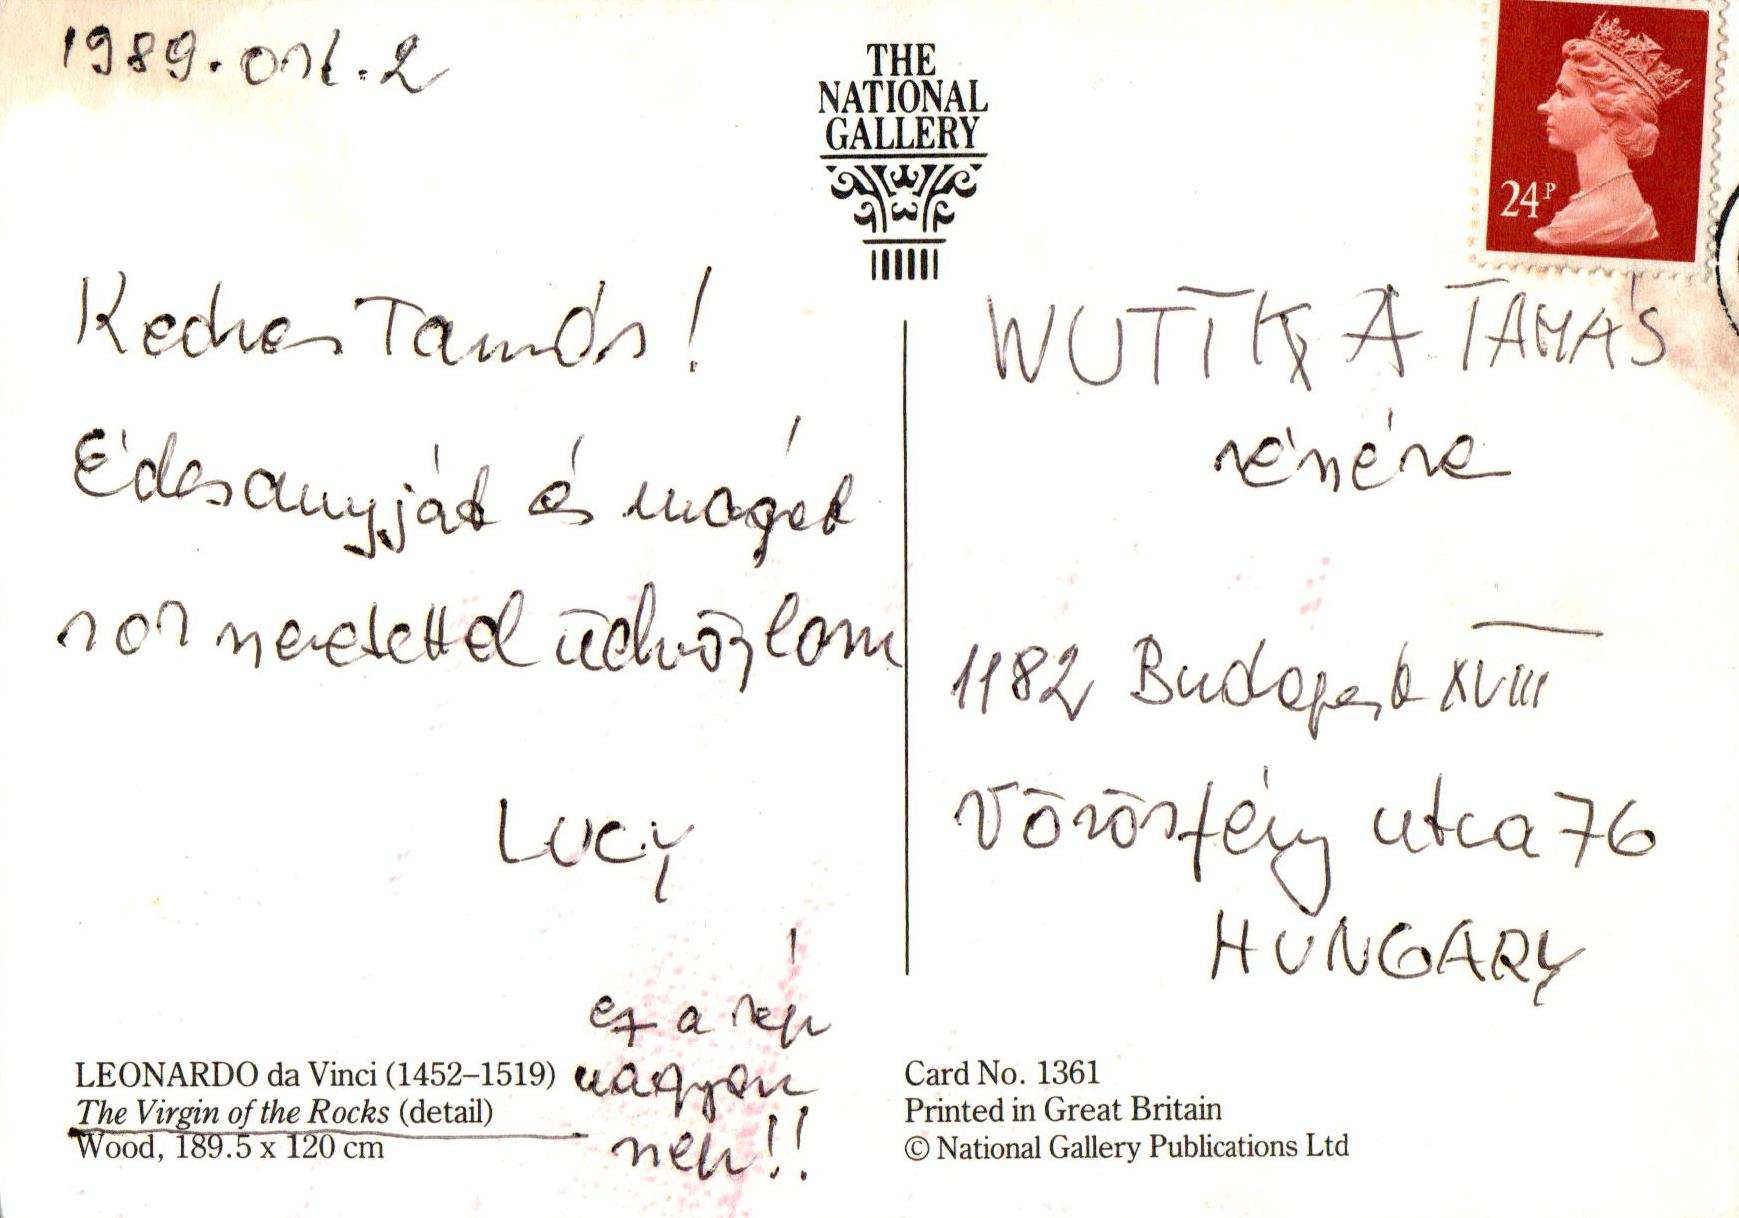 1989. okt. 2
THE
NATIONAL
GALLERY
24P
Kedves Tamás!
Édesanyját és magát
sok szeretettel üdvözlöm
Lucy
ez a kép
nagyon
szép!!
LEONARDO da Vinci (1452–1519)
The Virgin of the Rocks (detail)
Wood, 189.5 x 120 cm
WUTTKA TAMÁS
részére
1182 Budapest XVIII
Vörösfény utca 76
HUNGARY
Card No. 1361
Printed in Great Britain
© National Gallery Publications Ltd